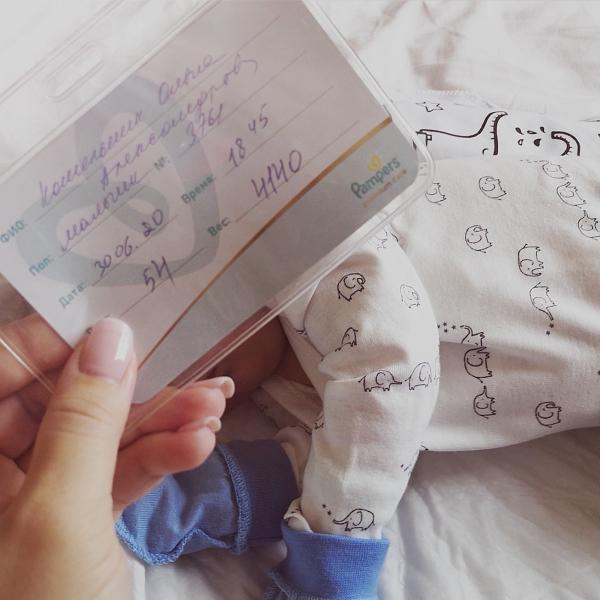 ФИО: Котельник Ольга
Александровна
Пол: мальчик № 3761
Дата: 30 06. 20 Время: 18 45
54 Вес: 4140
Pampers